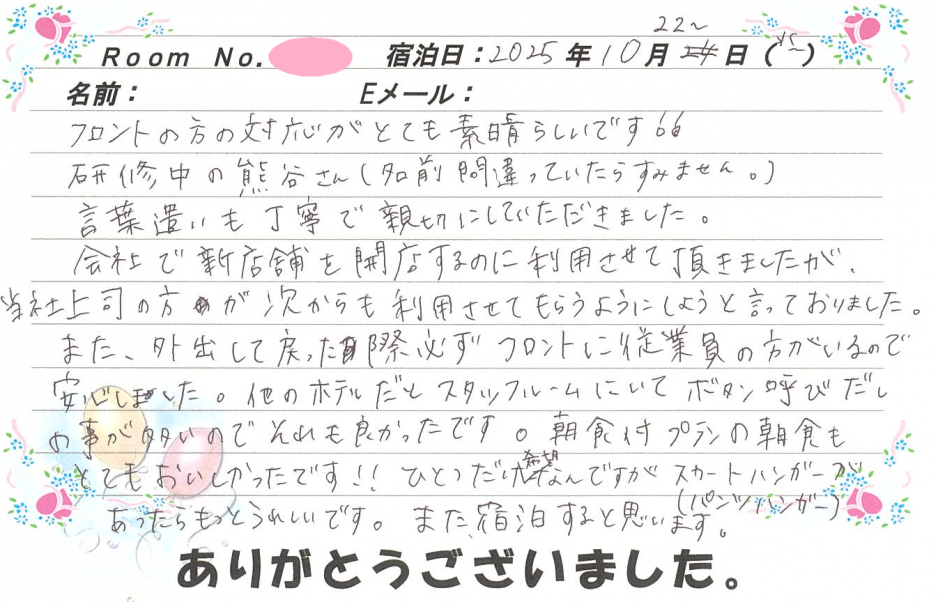 22~
Room No. 宿泊日：2025年10月日（　）
名前： Eメール：
フロントの方の対応がとても素晴らしいです
研修中の熊谷さん(名前間違っていたらすみません。)
言葉遣いも丁寧で親切にしていただきました。
会社で新店舗を開店するのに利用させて頂きましたが、
当社上司の方が次からも利用させてもらうようにしようと言っておりました。
また、外出して戻った際必ずフロントに従業員の方がいるので
安心しました。他のホテルだとスタッフルームにいてボタン呼びだし
の事が多いのでそれも良かったです。朝食付プランの朝食も
とてもおいしかったです!! ひとつだけ希望なんですがスカートハンガーが
(パンツハンガー)
あったらもっとうれしいです。また宿泊すると思います。
ありがとうございました。